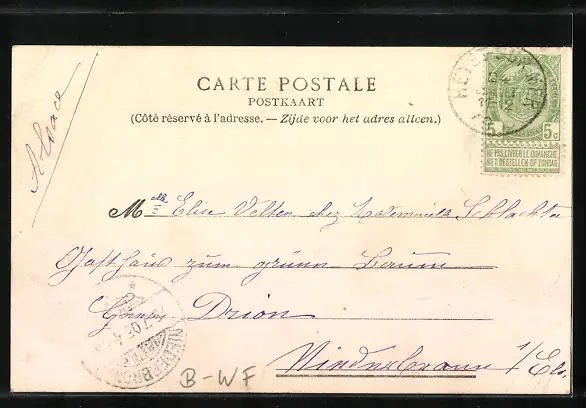 CARTE POSTALE
POSTKAART
(Côté réservé à l'adresse. — Zijde voor het adres alleen.)
Alsace
5c 5c
NE PAS LIVRER LE DIMANCHE
NIET BESTELLEN OP ZONDAG
Melle Elise Velten chez
Gasthaus zum grünen Baum
Drion
Niederbronn i/Els
B-WF